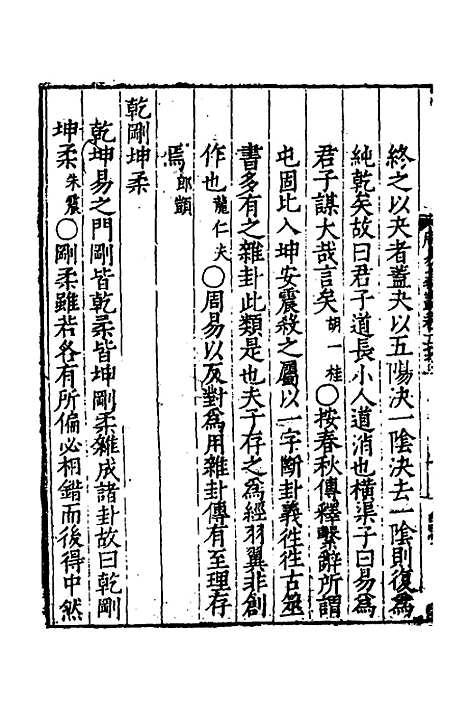 終之以夬者蓋夬以五陽決一陰決去一陰則復為
純乾矣故曰君子道長小人道消也橫渠子曰易為
君子謀大哉言矣胡一桂○按春秋傳釋繫辭所謂
屯固比入坤安震殺之屬以一字斷卦義徃徃古筮
書多有之雜卦此類是也夫子存之為經羽翼非創
作也龍仁夫○周易以反對為用雜卦傳有至理存
焉郎顗
乾剛坤柔
乾坤易之門剛皆乾柔皆坤剛柔雜成諸卦故曰乾剛
坤柔朱震○剛柔雖若各有所偏必相錯而後得中然